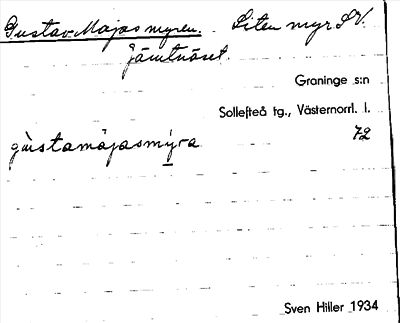 Gustav-Majasmyren. Liten myr S.V.
Jämtnäset.
Graninge s:n
Sollefteå tg., Västernorrl. l.
gùstamàjasmýra 72
Sven Hiller 1934